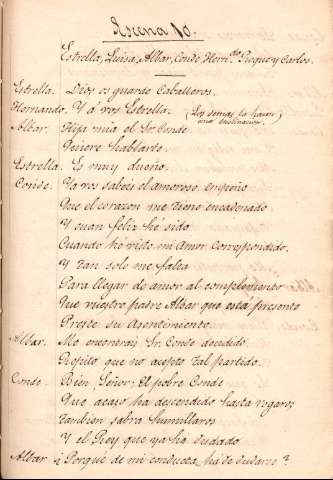 Escena 10.
Estrella, Luisa, Albar, Conde Hern.do Roque y Carlos.
Estrella. Dios os guarde Caballeros.
Hernando. Y a vos Estrella. (Los demas la hacen una inclinacion.)
Albar. Hija mia el Sr. Conde
Quiere hablarte.
Estrella. Es muy dueño.
Conde. Ya vos sabeis el amoroso empeño
Que el corazon me tiene encadenado
Y cuan feliz hé sido
Cuando hé visto mi Amor correspondido.
Y tan solo me falta
Para llegar de amor al complemento
Que vuestro padre Albar que está presente
Preste su Asentimiento.
Albar. Me encontrais Sr. Conde decidido.
Repito que no acepto tal partido.
Conde. Bien, Señor; El pobre Conde
Que acaso ha descendido hasta rogaros
Tambien sabrá humillaros
Y el Rey que ya ha dudado
Albar ¿Porqué de mi conducta ha de dudarse?